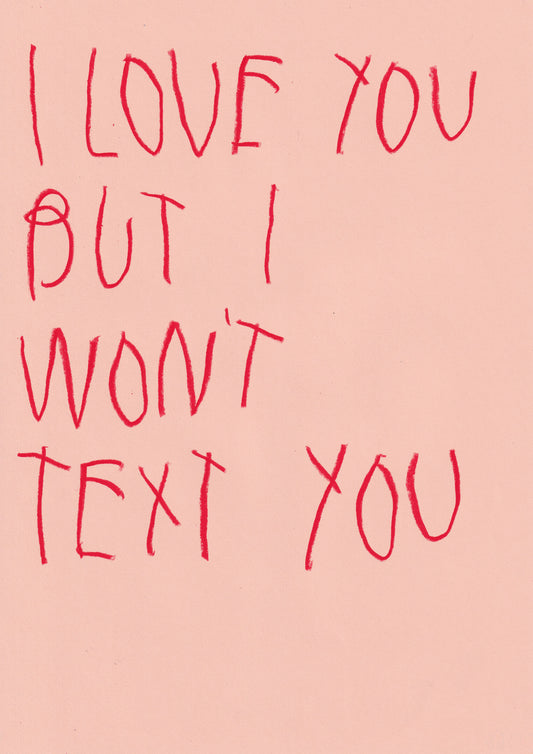 I LOVE YOU
BUT I
WON'T
TEXT YOU